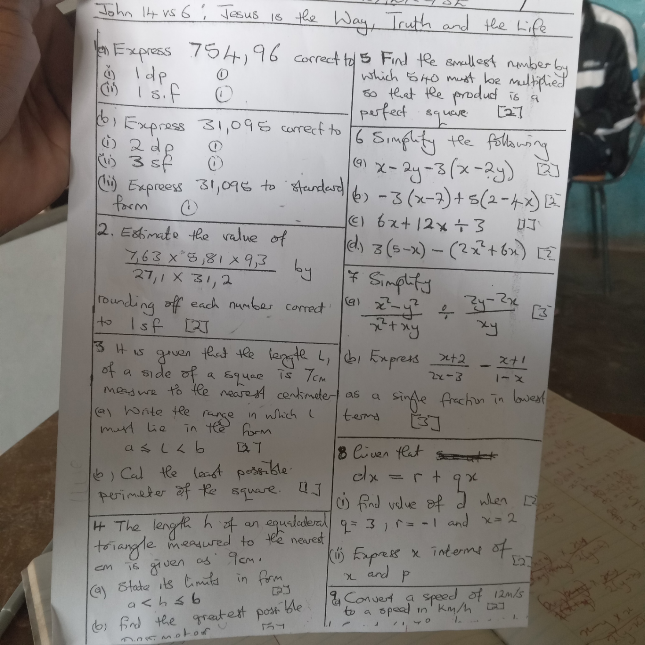 John 14 vs 6 : Jesus is the Way, Truth and the Life
(a) Express 754,96 correct to
(i) 1 dp (1)
(ii) 1 s.f (1)
(b) Express 31,095 correct to
(i) 2 dp (1)
(ii) 3 sf (1)
(iii) Expreess 31,095 to standard
form (1)
2. Estimate the value of
7,63 × 5,81 × 9,3
27,1 × 31,2
by
rounding off each number correct
to 1 sf [2]
3 It is given that the length L,
of a side of a squae is 7cm
measure to the nearest centimeter
(a) Write the range in which L
must lie in the form
a ≤ L < b
(b) Cal the least possible
perimeter of the square. [1]
4 The length h of an equilateral
triangle measured to the nearest
cm is given as 9cm.
(a) State its limits in form
a < h ≤ b [2]
(b) find the greatest possible
5 Find the smallest number by
which 540 must be multiplied
so that the product is a
perfect square [2]
6 Simplify the following
(a) x - 2y - 3(x - 2y) [2]
(b) -3(x-7) + 5(2-4x) [2
(c) 6x + 12x ÷ 3 [1]
(d) 3(5-x) - (2x² + 6x) [2
7 Simplify
(a) x² - y² ÷ 2y - 2x [3
x² + xy xy
(b) Express x+2 - x+1
2x-3 1-x
as a single fraction in lowest
terms [3]
8 Given that
dx = r + qx
(i) find value of d when [2
q = 3, r = -1 and x = 2
(ii) Express x interms of [2]
x and p
9 Convert a speed of 12m/s
to a speed in Km/h [2]